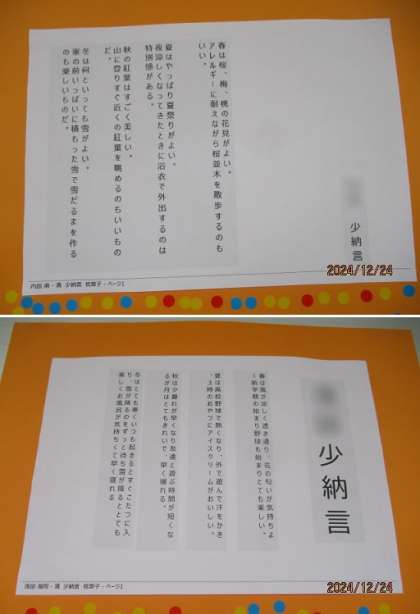 少納言
春は桜、梅、桃の花見がよい。
アレルギーに耐えながら桜並木を散歩するのも
いい。
夏はやっぱり夏祭りがよい。
夜涼しくなってきたときに浴衣で外出するのは
特別感がある。
秋の紅葉はすごく美しい。
山に登りすぐ近くの紅葉を眺めるのもいいもの
だ。
冬は何といっても雪がよい。
家の前いっぱいに積もった雪で雪だるまを作る
のも楽しいものだ。
少納言 枕草子 - ページ1
2024/12/24
少納言
春は風が涼しく透き通り、花の匂いが気持ちよ
く新学期の始まり野球も始まりとても楽しい。
夏は高校野球で熱くなり、外で遊んで汗をかき、
3時のおやつにアイスクリームがおいしい。
秋は夕暮れが早くなり友達と遊ぶ時間が短くな
るが月はとてもきれいで、早く寝れる。
冬はとても寒くいつも起きるとすぐこたつに入
り、雪が降るのをずっと待ち雪が降るととても
楽しくお風呂が気持ちくて早く寝れる
少納言 枕草子 - ページ1
2024/12/24